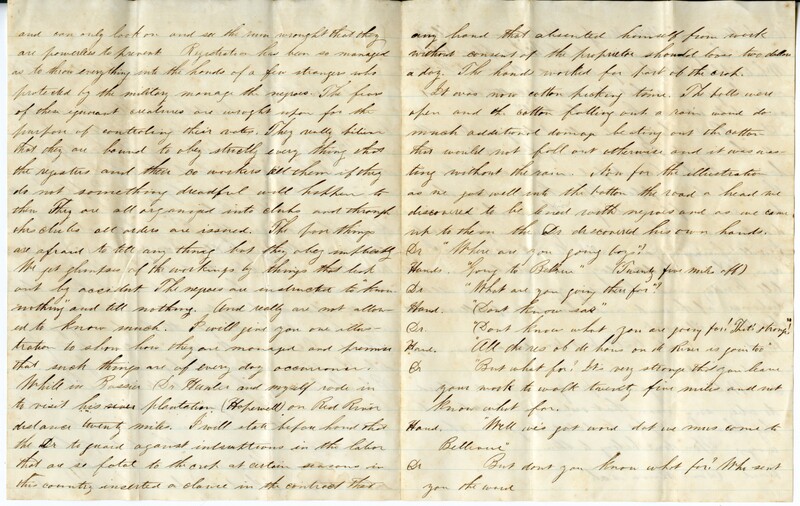 and can only look on and see the ruin wrought that they
are powerless to prevent. Registration has been so managed
as to throw everything into the hands of a few strangers who
protected by the military manage the negroes. The fears
of these ignorant creatures are wrought upon for the
purpose of controling their votes. They really believe
that they are bound to obey strictly every thing that
the registers and their co workers tell them if they
do not something dreadful will happen to
them They are all organized into clubs and through
the clubs all orders are issued. The poor things
are afraid to tell any thing but they obey implicitly
We get glimpses of the workings by things that leak
out by accident The negroes are instructed to "know
nothing" and tell nothing. And really are not allow
ed to know much. I will give you one illus-
tration to show how they are managed and premise
that such things are of every day occurrence.
While in Bossier Dr Hunter and myself rode in
to visit his river plantation (Hopewell) on Red River
distance twenty miles. I will state before hand that
the Dr to guard against interruptions in the labor
that are so fatal to the crop at certain seasons in
this country inserted a clause in the contract that
any hand that absented himself from work
without consent of the proprietor should lose two dollars
a day. The hands worked for part of the crop.
It was now cotton picking time. The bolls were
open and the cotton falling out a rain would do
much additional damage beating out the cotton
that would not fall out otherwise and it was
without the rain. Now for the illustration
as we got well into the bottom the road a head we
discovered to be lined with negroes and as we came
up to them the Dr discovered his own hands.
Dr "Where are you going boys"?
Hands. "Going to Bellevue" (Twenty five miles off)
Dr "What are you going there for"?
Hand. "Dont know sar"
Dr "Dont know what you are going for! That's strange!"
Hand. "All de res ob de hans on de River is goin too"
Dr "But what for? It's very strange that you leave
your work to walk twenty five miles and not
know what for.
Hand. Well we's got word dat we mus come to
Bellevue"
Dr But dont you know what for? Who sent
you the word